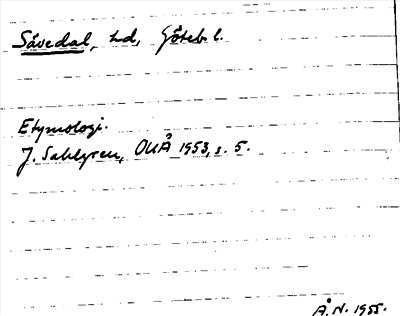 Sävedal, hd, Göteb. l.
Etymologi.
J. Sahlgren, OUÅ 1953, s. 5.
Å.N. 1955.